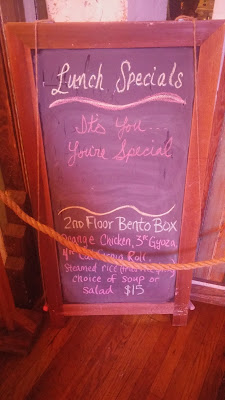 Lunch Specials
It's You...
You're Special
2nd Floor Bento Box
Orange Chicken, 3pc Gyoza,
4pc California Roll,
Steamed rice
choice of soup or
salad $15